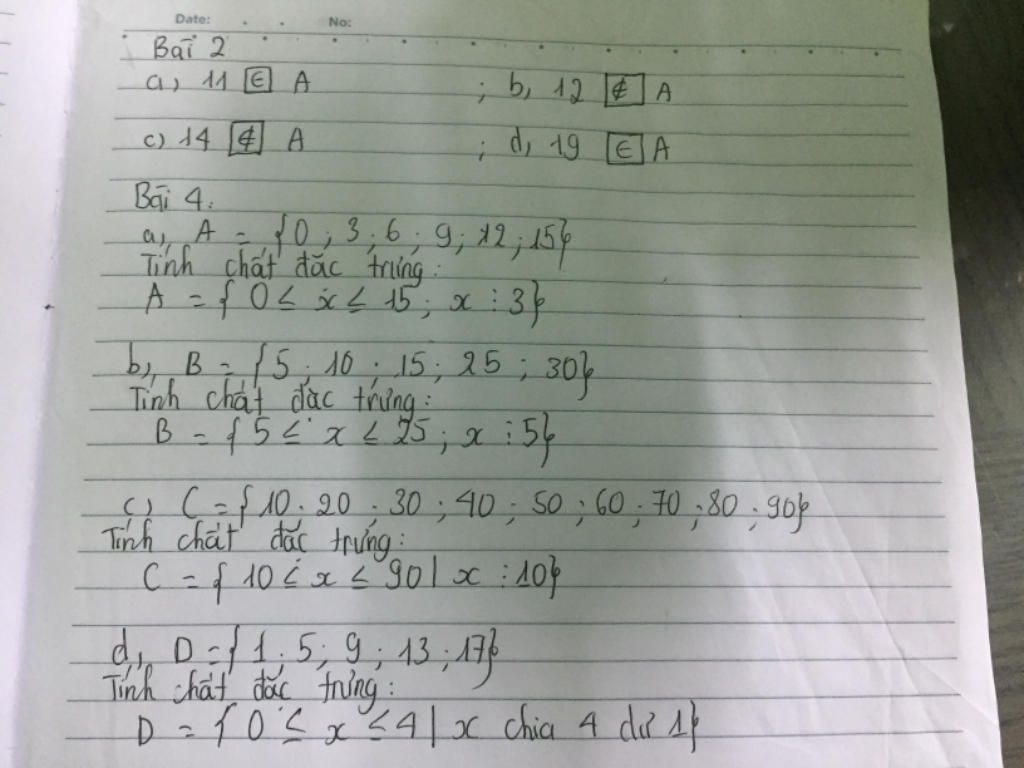 Date: . . No:
Bài 2
a, 11 ∈ A ; b, 12 ∉ A
c) 14 ∉ A ; d, 19 ∈ A
Bài 4:
a, A = {0 ; 3 ; 6 ; 9 ; 12 ; 15}
Tính chất đặc trưng:
A = { 0 ≤ x ≤ 15 ; x ⋮ 3}
b, B = {5 ; 10 ; 15 ; 25 ; 30}
Tính chất đặc trưng:
B = { 5 ≤ x ≤ 25 ; x ⋮ 5}
c) C = { 10 . 20 ; 30 ; 40 ; 50 ; 60 ; 70 ; 80 ; 90}
Tính chất đặc trưng:
C = { 10 ≤ x ≤ 90 | x ⋮ 10}
d, D = { 1 ; 5 ; 9 ; 13 ; 17}
Tính chất đặc trưng:
D = { 0 ≤ x ≤ 4 | x chia 4 dư 1}